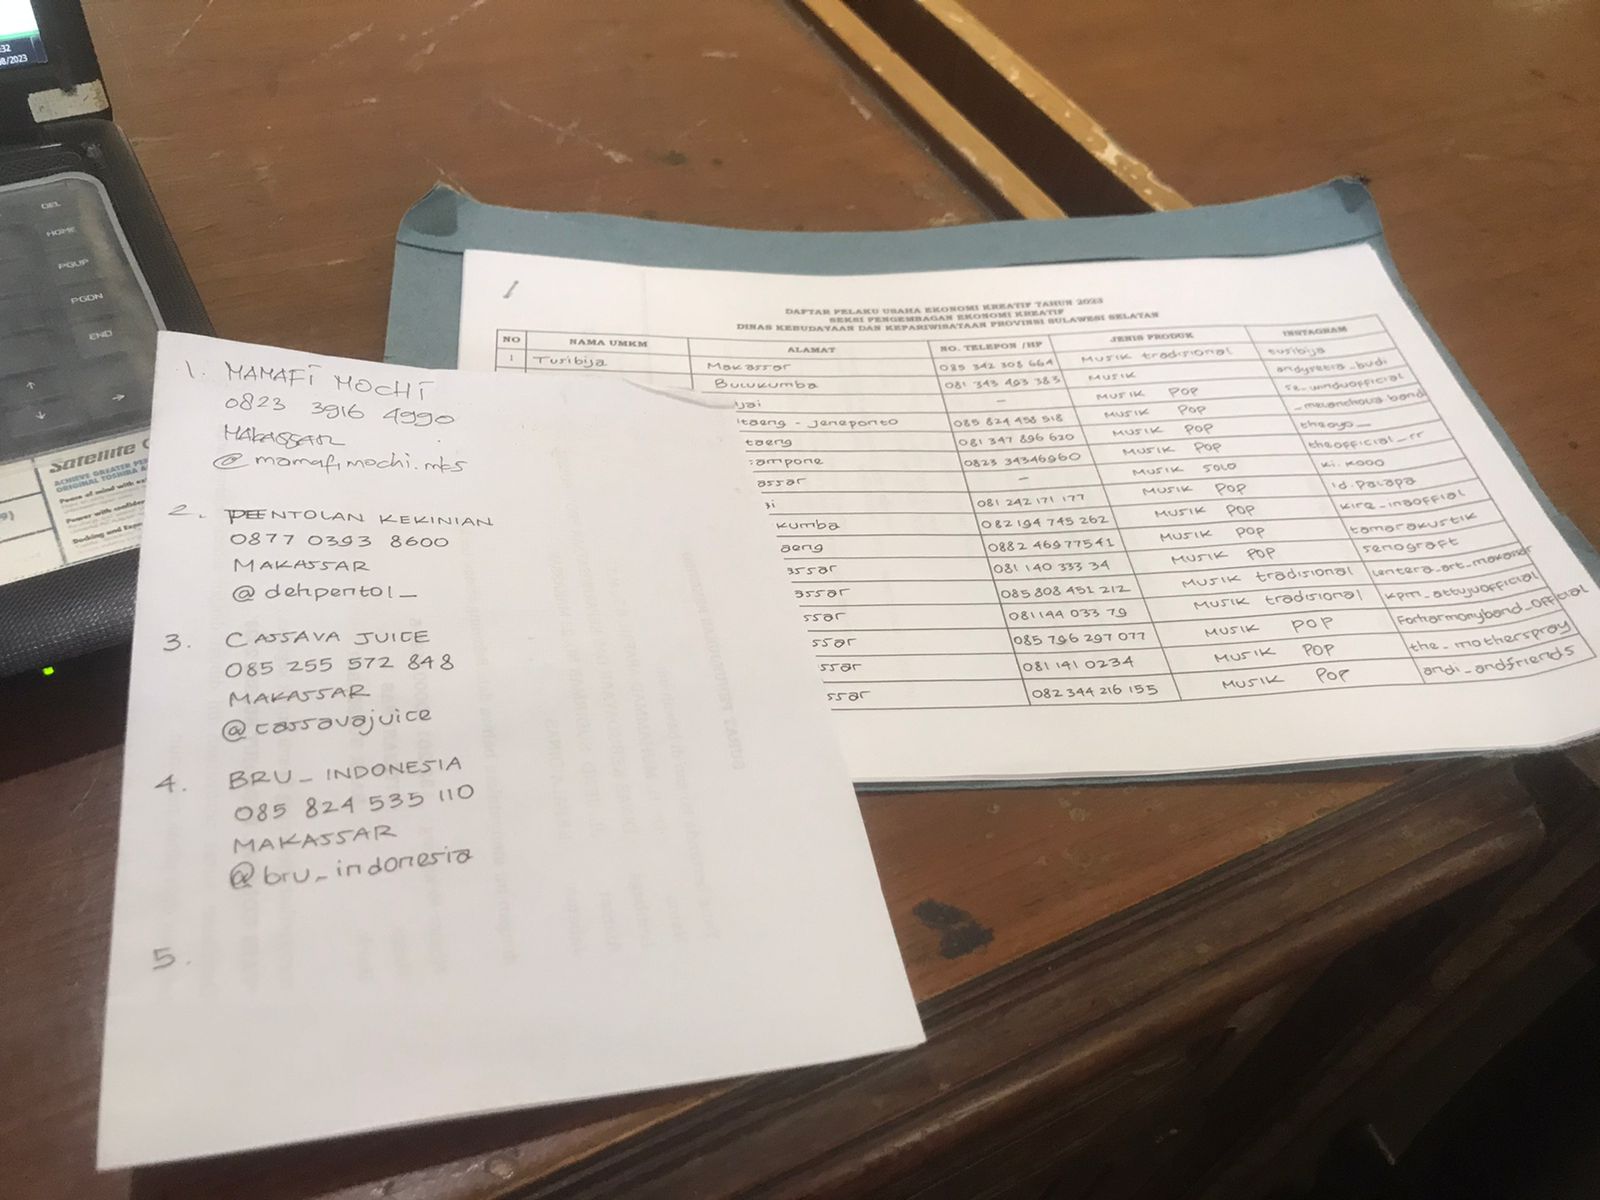 32
08/2023
DEL
HOME
PGUP
PGDN
END
Satellite
ACHIEVE GREATER
ORIGINAL TOSHIBA
Peace of mind with
Power with
Docking and
1. MAMAFI MOCHI
0823 3916 4990
MAKASSAR
@mamafimochi.mks
2. PEENTOLAN KEKINIAN
0877 0393 8600
MAKASSAR
@dehpentol_
3. CASSAVA JUICE
085 255 572 848
MAKASSAR
@cassavajuice
4. BRU_INDONESIA
085 824 535 110
MAKASSAR
@bru_indonesia
5.
1
DAFTAR PELAKU USAHA EKONOMI KREATIF TAHUN 2023
SEKSI PENGEMBAGAN EKONOMI KREATIF
DINAS KEBUDAYAAN DAN KEPARIWISATAAN PROVINSI SULAWESI SELATAN
NO NAMA UMKM ALAMAT NO. TELEPON /HP JENIS PRODUK INSTAGRAM
1 Turibija Makassar 085 342 308 664 Musik tradisional turibija
Bulukumba 081 343 493 383 Musik
jai - Musik Pop
taeng - Jeneponto 085 824 458 518 Musik Pop _melanchova band
taeng 081 347 896 620 Musik Pop theoyo_
ampone 0823 34346960 Musik Pop theofficial_rr
assar - Musik Solo
081 242 171 177 Musik Pop id.parapa
kumba 082 194 745 262 Musik Pop
aeng 0882 46977541 Musik Pop tamarakustik
assar 081 140 333 34 Musik Pop senograft
assar 085 808 451 212 Musik tradisional lentera_art_makassar
ssar 081144 033 79 Musik tradisional kpm_attujuofficial
ssar 085 796 297 077 Musik Pop Forharmonyband_official
ssar 081 141 0234 Musik Pop the_motherspray
ssar 082 344 216 155 Musik Pop andi_andfriends